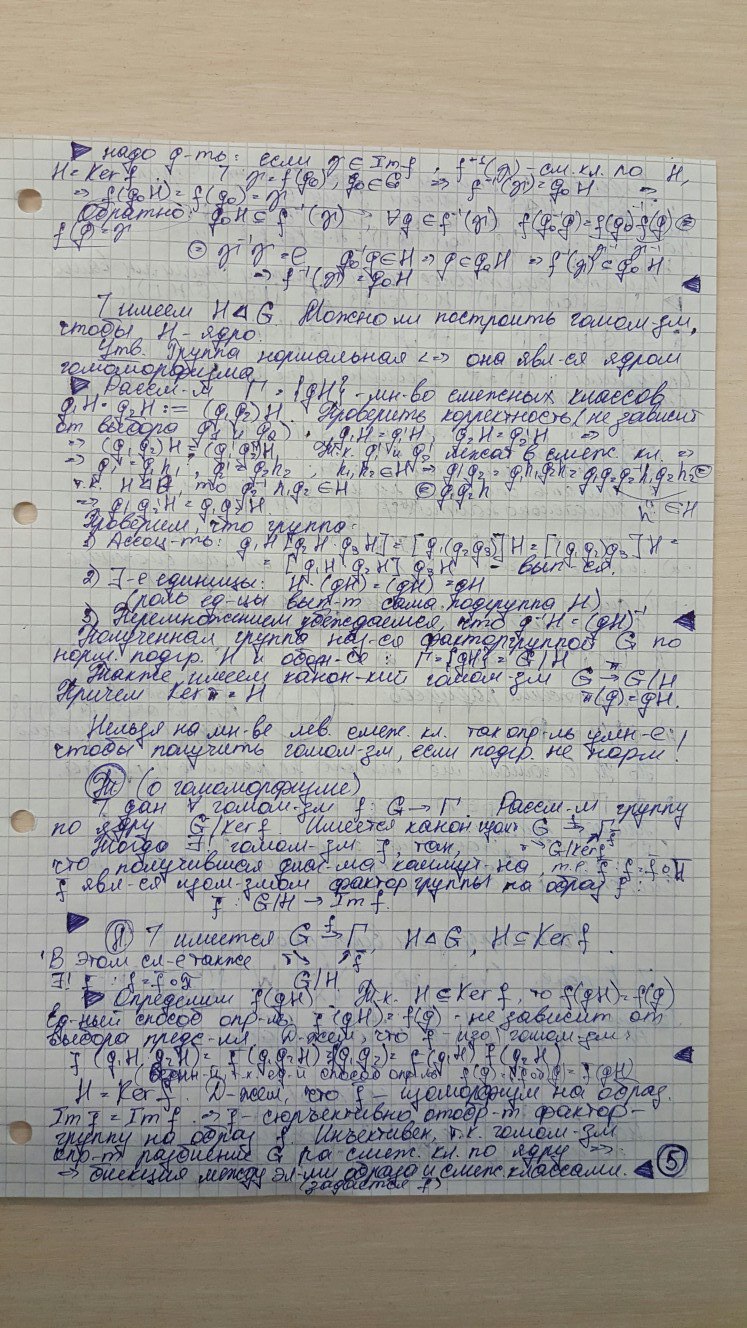 ▶ надо д-ть: если γ ∈ Im f, f⁻¹(γ) - см. кл. по H,
H = Ker f. ⅂ γ = f(g₀), g₀ ∈ G ⇒ f⁻¹(γ) = g₀H ⇒
⇒ f(g₀H) = f(g₀) = γ
Обратно: g₀H ⊆ f⁻¹(γ), ∀g ∈ f⁻¹(γ) f(g₀⁻¹g) = f(g₀)⁻¹f(g) ⊜
f(g) = γ
⊜ γ⁻¹γ = e g₀⁻¹g ∈ H ⇒ g ∈ g₀H ⇒ f⁻¹(γ) ⊆ g₀H
⇒ f⁻¹(γ) = g₀H ◀
⅂ имеем H ⊲ G. Можно ли построить гомом-зм,
чтобы H - ядро.
Утв. Группа нормальная <=> она явл-ся ядром
гомоморфизма
▶ Рассм-м Γ = {gH} - мн-во смежных классов
g₁H · g₂H := (g₁g₂)H. Проверить корректность (не зависит
от выбора g₁ и g₂). g₁H = g₁'H, g₂H = g₂'H ⇒
⇒ (g₁g₂)H = (g₁'g₂')H. Т.к. g₁' и g₂' лежат в смеж. кл. ⇒
⇒ g₁' = g₁h₁, g₂' = g₂h₂, h₁,h₂ ∈ H ⇒ g₁'g₂' = g₁h₁g₂h₂ = g₁g₂g₂⁻¹h₁g₂h₂ ⊜
т.к. H ⊲ G, то g₂⁻¹h₁g₂ ∈ H ⊜ g₁g₂h
h ∈ H
⇒ g₁g₂H = g₁'g₂'H.
Проверим, что группа:
1) Ассоц-ть: g₁H[g₂H · g₃H] = [g₁(g₂g₃)]H = [(g₁g₂)g₃]H =
= [g₁H g₂H] g₃H - вып-ся.
2) ∃-е единицы: H · (gH) = (gH) = gH
(роль ед-цы вып-т сама подгруппа H)
3) Перемножением убеждаемся, что g⁻¹H = (gH)⁻¹ ◀
Полученная группа наз-ся факторгруппой G по
норм. подгр. H и обоз-ся: Γ = {gH} = G/H
Также имеем канон-кий гомом-зм G →π G/H
Причем Ker π = H π(g) = gH.
Нельзя на мн-ве лев. смеж. кл. так опр-ль умн-е,
чтобы получить гомом-зм, если подгр. не норм!
Т (о гомоморфизме)
⅂ дан ∀ гомом-зм f: G → Γ. Рассм-м группу
по ядру G/Ker f. Имеется G →f Γ
Тогда ∃! гомом-зм f̄, так, π↘ G/Ker f ↗f̄
что получившаяся диаг-ма коммут-на, т.е. f = f̄ ∘ π
f̄ явл-ся изом-змом факторгруппы на образ f:
f̄: G/H → Im f.
▶
Л ⅂ имеется G →f Γ H ⊲ G, H ⊆ Ker f.
В этом сл-е также π↘ ↗f̄
∃! f̄: f = f̄ ∘ π G/H
▶ Определим f̄(gH). Т.к. H ⊆ Ker f, то f(gH) = f(g)
Ед-ный способ опр-ль f̄(gH) = f(g) - не зависит от
выбора предс-ля. Д-жем, что f̄ - гомом-зм:
f̄(g₁H g₂H) = f̄(g₁g₂H) = f(g₁g₂) = f̄(g₁H) f̄(g₂H) ◀
т.к. ед-й способ опр-ля f(g) = f̄∘π(g) = f̄(gH)
H = Ker f. Д-жем, что f̄ - изоморфизм на образ.
Im f̄ = Im f. ⇒ f̄ - сюръективно отобр-т фактор-
группу на образ f. Инъективен, т.к. гомом-зм
опр-т разбиение G на смеж. кл. по ядру ⇒
⇒ биекция между эл-ми образа и смеж. классами. ◀
(задается f̄)
5